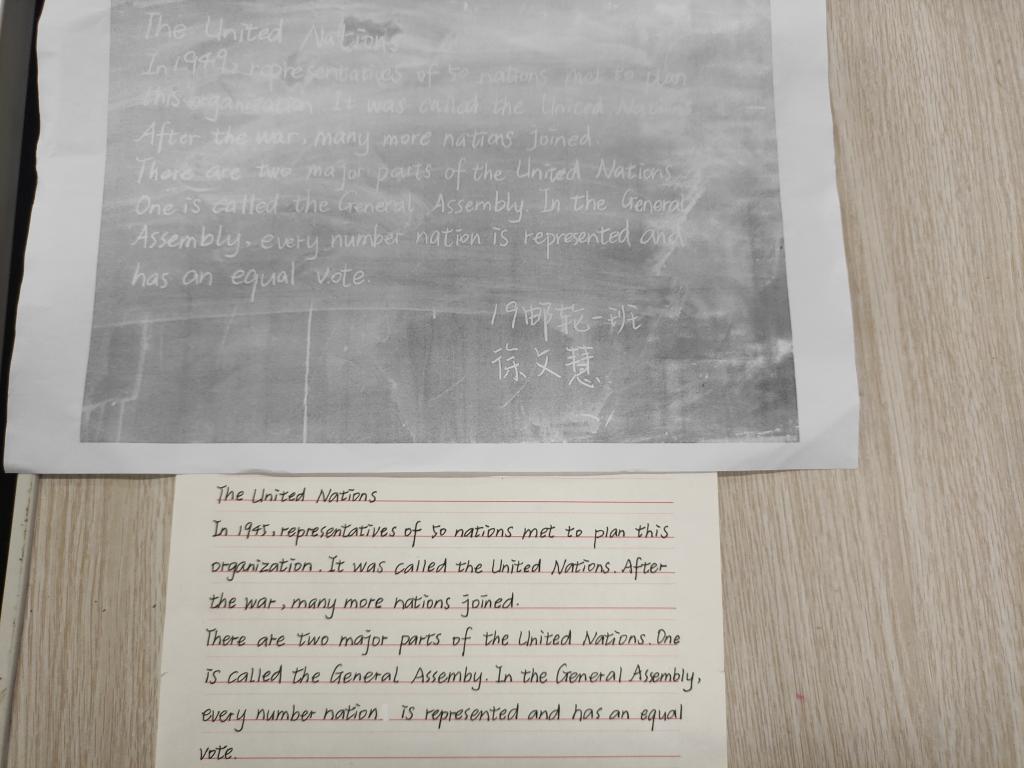 The United Nations
In 1949, representatives of 50 nations met to plan
this organization. It was called the United Nations
After the war, many more nations joined.
There are two major parts of the United Nations
One is called the General Assembly. In the General
Assembly, every number nation is represented and
has an equal vote.
19邮轮一班
徐文慧
The United Nations
In 1945, representatives of 50 nations met to plan this
organization. It was called the United Nations. After
the war, many more nations joined.
There are two major parts of the United Nations. One
is called the General Assemby. In the General Assembly,
every number nation is represented and has an equal
vote.